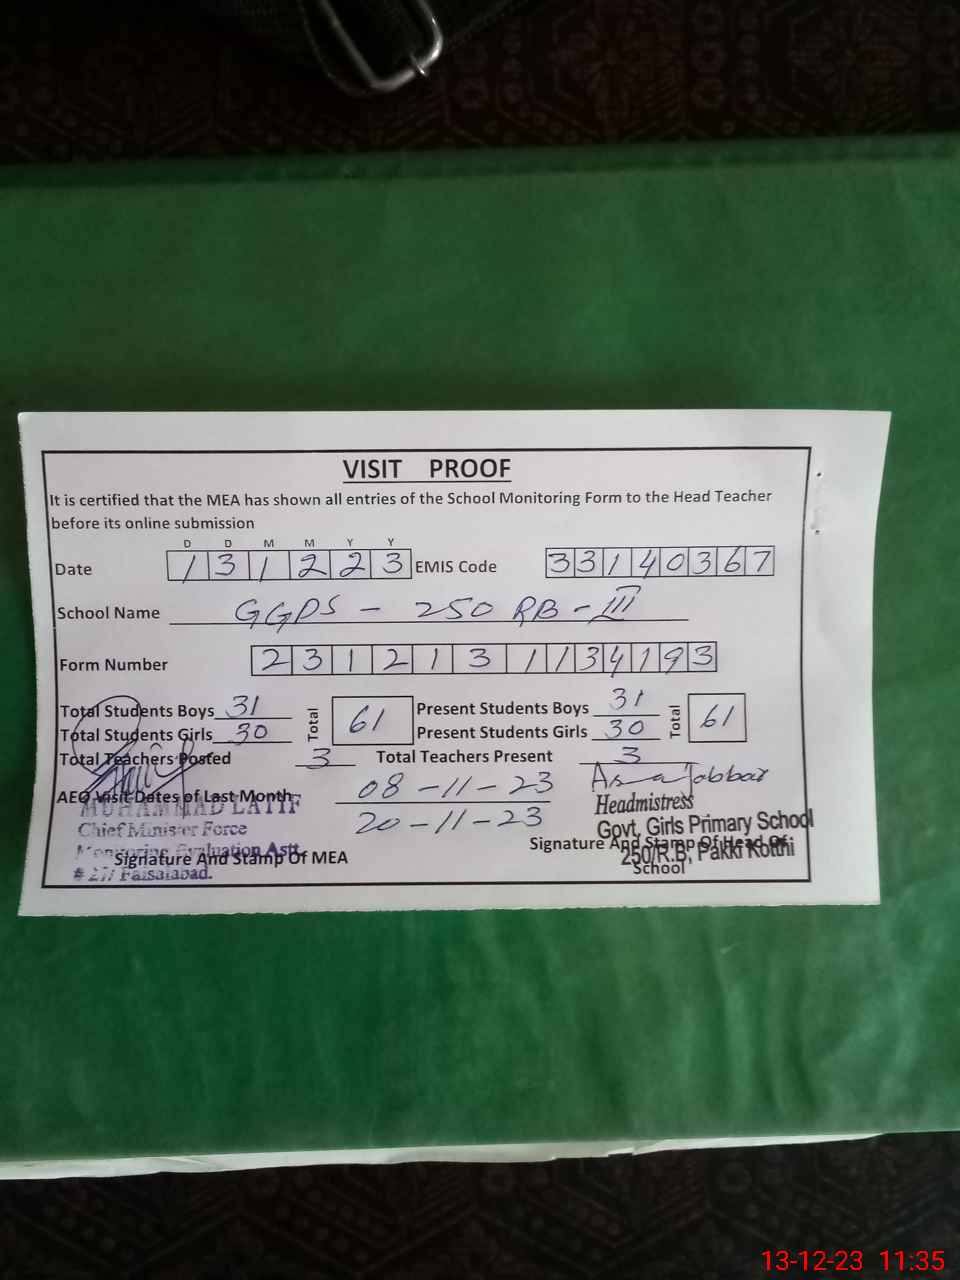 VISIT PROOF
It is certified that the MEA has shown all entries of the School Monitoring Form to the Head Teacher
before its online submission
D D M M Y Y
Date 1 3 1 2 2 3 EMIS Code 3 3 1 4 0 3 6 7
School Name GGPS - 250 RB - III
Form Number 2 3 1 2 1 3 1 1 3 4 1 9 3
Total Students Boys 31 Total 61 Present Students Boys 31 Total 61
Total Students Girls 30 Present Students Girls 30
Total Teachers Posted 3 Total Teachers Present 3
AEO Visit Dates of Last Month 08-11-23
20-11-23
MUHAMMAD LATIF
Chief Minister Force
Monitoring Evaluation Astt.
Faisalabad.
Signature And Stamp Of MEA
Headmistress
Govt, Girls Primary School
250/R.B, Pakki Kothi
Signature And Stamp Of Head Of
School
13-12-23 11:35